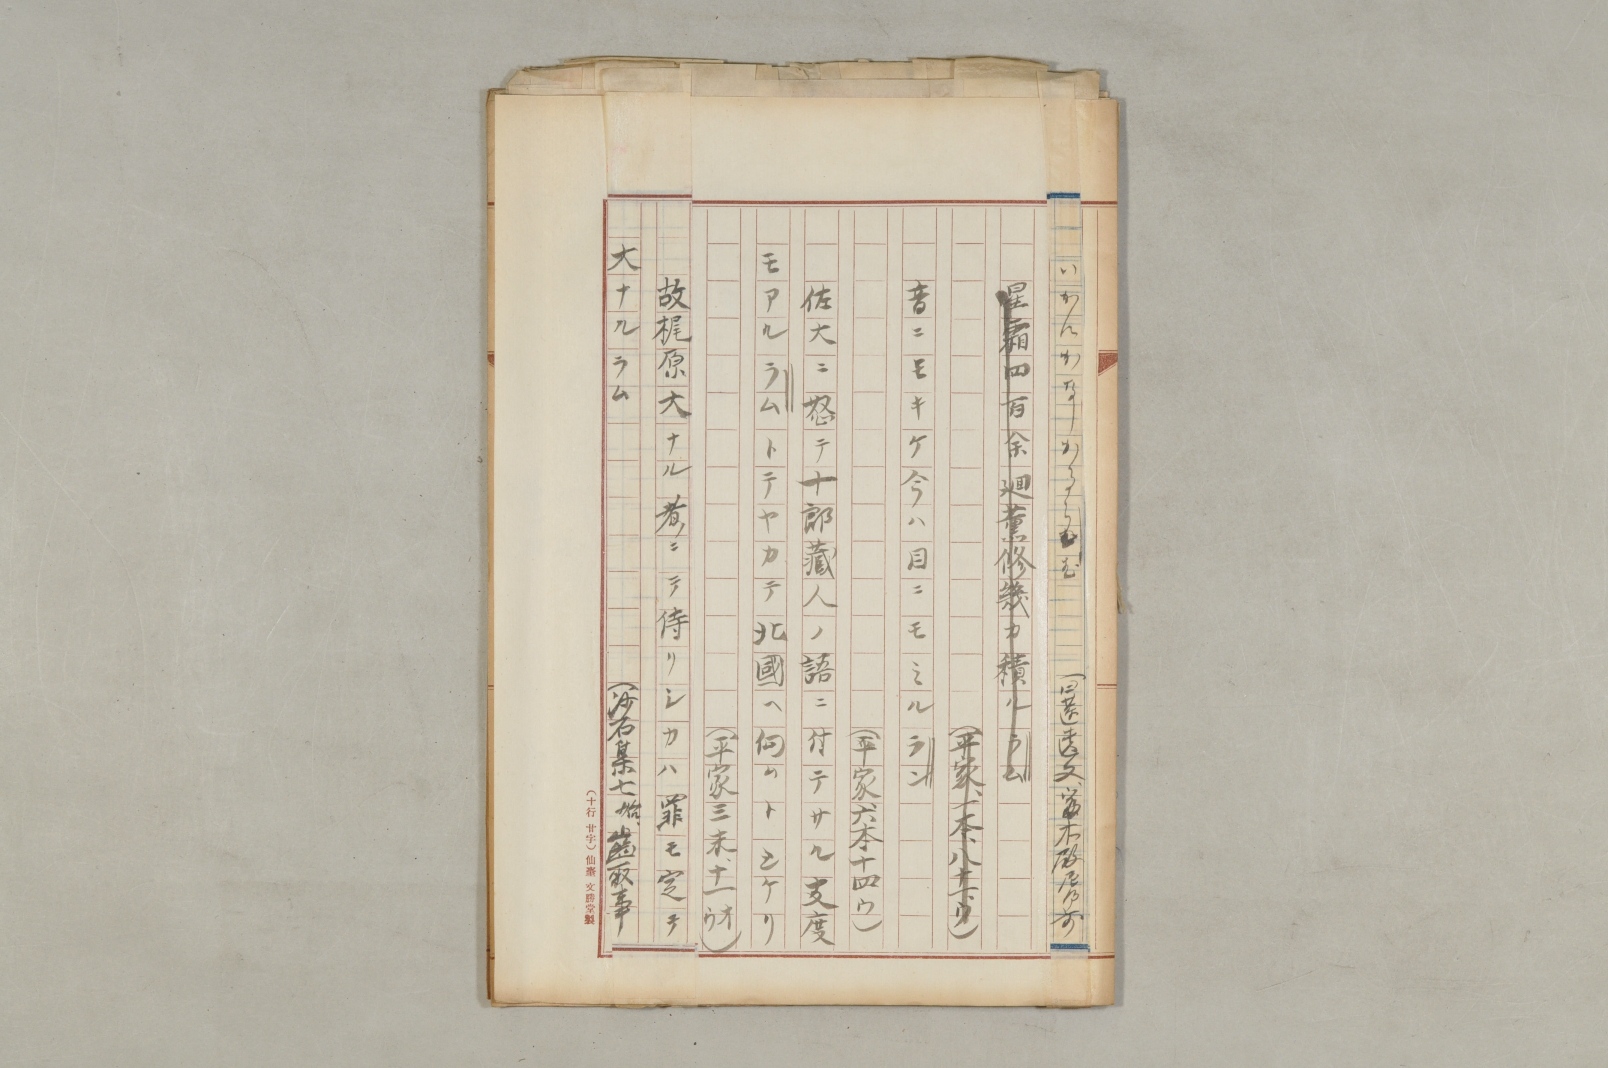 いかんかなしかるらむ
（日蓮遺文、富木殿尼前
星霜四百余廻薫修幾カ積ルラム
（平家、一本、八十一ウ）
音ニモキケ今ハ目ニモミルラン
（平家六本十四ウ）
佐大ニ怒テ十郎藏人ノ語ニ付テサル支度
モアルラムトテヤカテ北國ヘ向ハ
（平家三末、十一
故梶原大ナル者ニテ侍リシカハ罪モ定テ
大ナルラム
（沙石集七
（十行 廿字）仙臺 文勝堂製